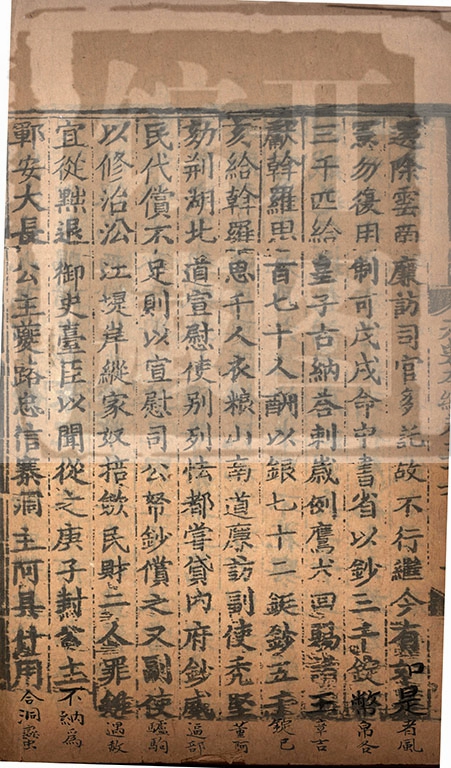 選除雲南廉訪司官多託故不行繼今有如是者風
憲勿復用制可戊戌命中書省以鈔三千錠幣帛各
三千匹給皇子古納荅剌歲例鷹犬回賜諸王章吉
獻斡羅思百七十人酬以銀七十二鋌鈔五千錠已
亥給斡羅思千人衣粮山南道廉訪副使禿堅董阿
劾荊湖北道宣慰使別列怯都嘗貸內府鈔威逼部
民代償不足則以宣慰司公帑鈔償之又副使驢駒
以修治㳂江堤岸縱家奴掊歛民財二人罪雖遇赦
宜從黜退御史臺臣以聞從之庚子封公主不納為
鄆安大長公主夔路忠信寨洞主阿具什用合洞蠻